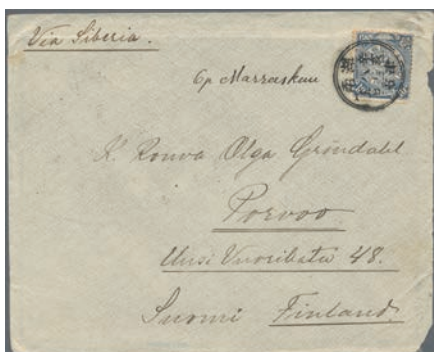 Via Siberia.
6p Marraskuu
K. Rouva Olga Gröndahl
Porvoo.
Uusi Vuorikatu 48.
Suomi Finland.